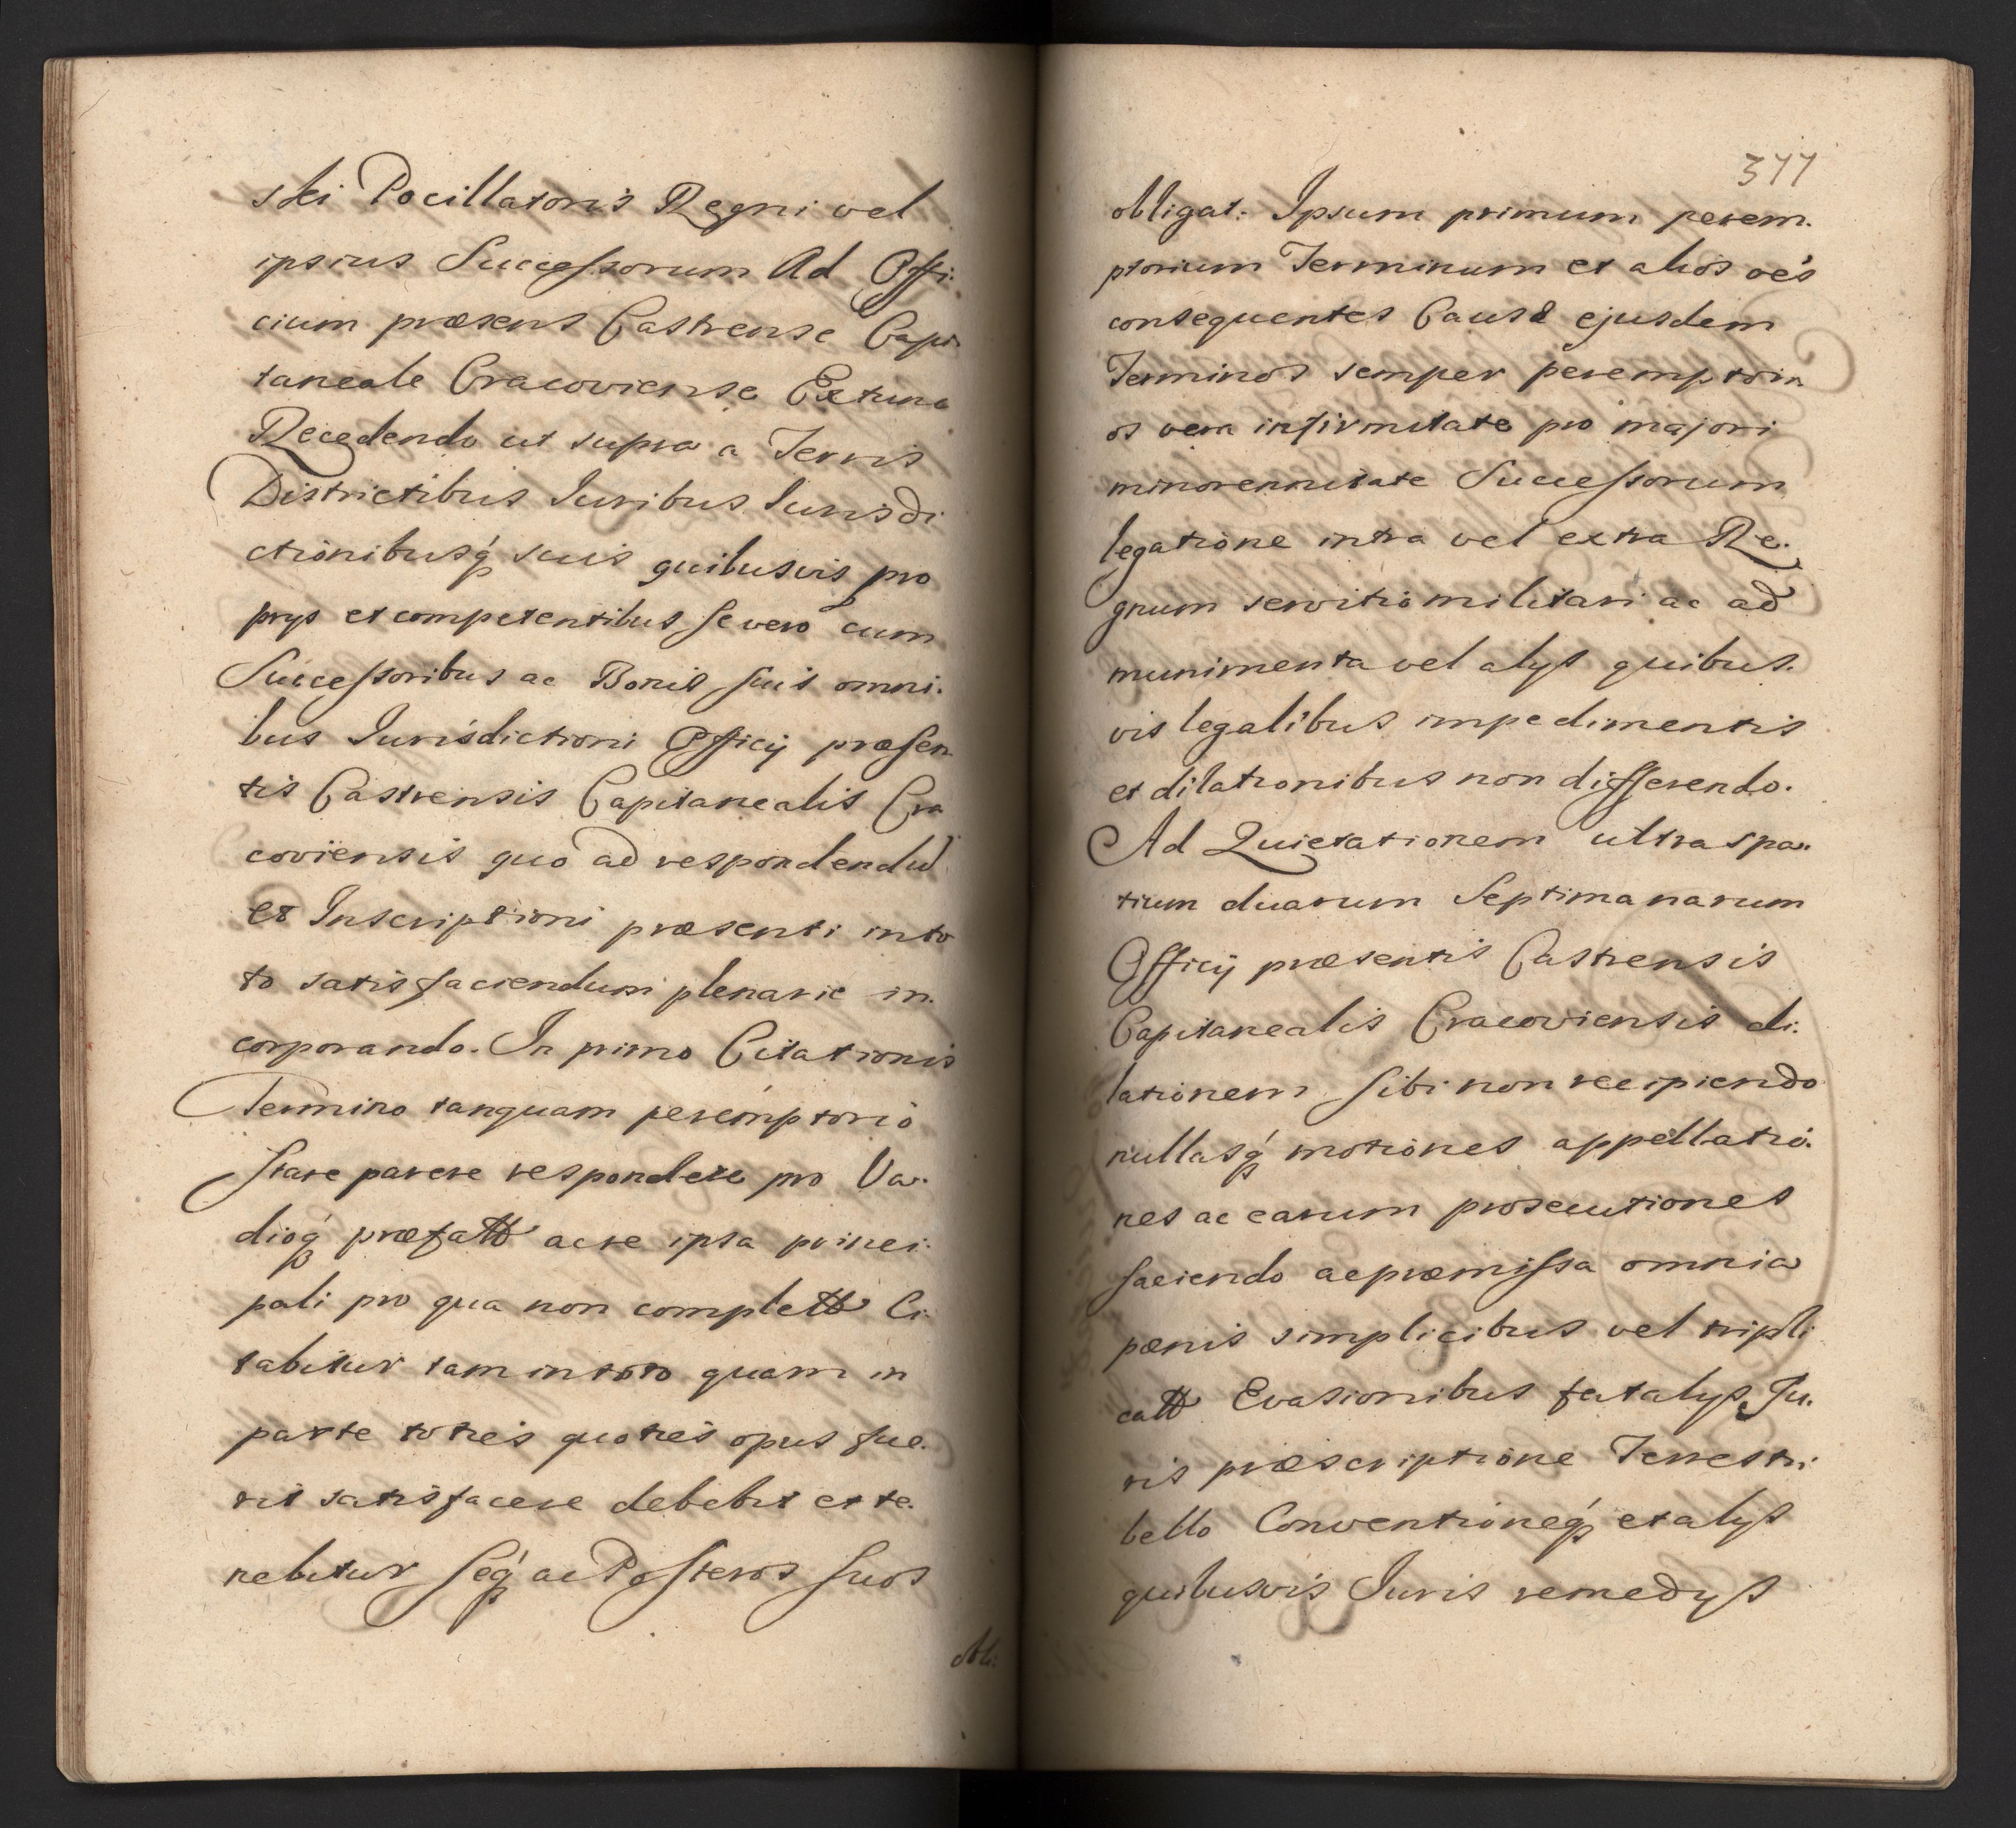 ski Pocillatoris Regni vel
ipsius Successorum Ad Offi:
cium præsens Castrense Capi
taneale Cracoviense Extunc
Recedendo ut supra a Terris
Districtibus Iuribus Iurisdi
ctionibusq́ suis quibusvis pro
prys et competentibus se vero cum
Successoribus ac Bonis suis omni.
bus Iurisdictioni Officij præsen
tis Castrensis Capitanealis Cra
coviensis quo ad respondendũ
et Inscriptioni præsenti in to
to satisfaciendum plenarie in.
corporando. In primo Citationis
Termino tanquam peremptorio
stare parere respondere pro Va.
dioq́ præfatt ac re ipsa princi.
pali pro qua non complett Ci
tabitur tam in toto quam in
parte toties quoties opus fue.
rit satisfacere debebit et te.
nebitur seq́ ac Posteros suos
obli:
377
obligat: Ipsum primum perem.
ptorium Terminum et alios oẽs
consequentes Causæ ejusdem
Terminos semper peremptori
os vera infirmitate pro majori
minorennitate Successorum
legatione intra vel extra Re.
gnum servitio militari ac ad
munimenta vel alys quibus.
vis legalibus impedimentis
et dilationibus non differendo.
Ad Quietationem ultra spa.
tium duarum Septimanarum
Officij præsentis Castrensis
Capitanealis Cracoviensis di.
lationem sibi non recipiendo
nullasq́ motiones appellatio.
nes ac earum prosecutiones
faciendo ac præmissa omnia
pœnis simplicibus vel tripli
catt Evasionibus fatalys Ju.
ris præscriptione Terrestri
bello Conventioneq́ et alys
quibusvis Iuris remedys